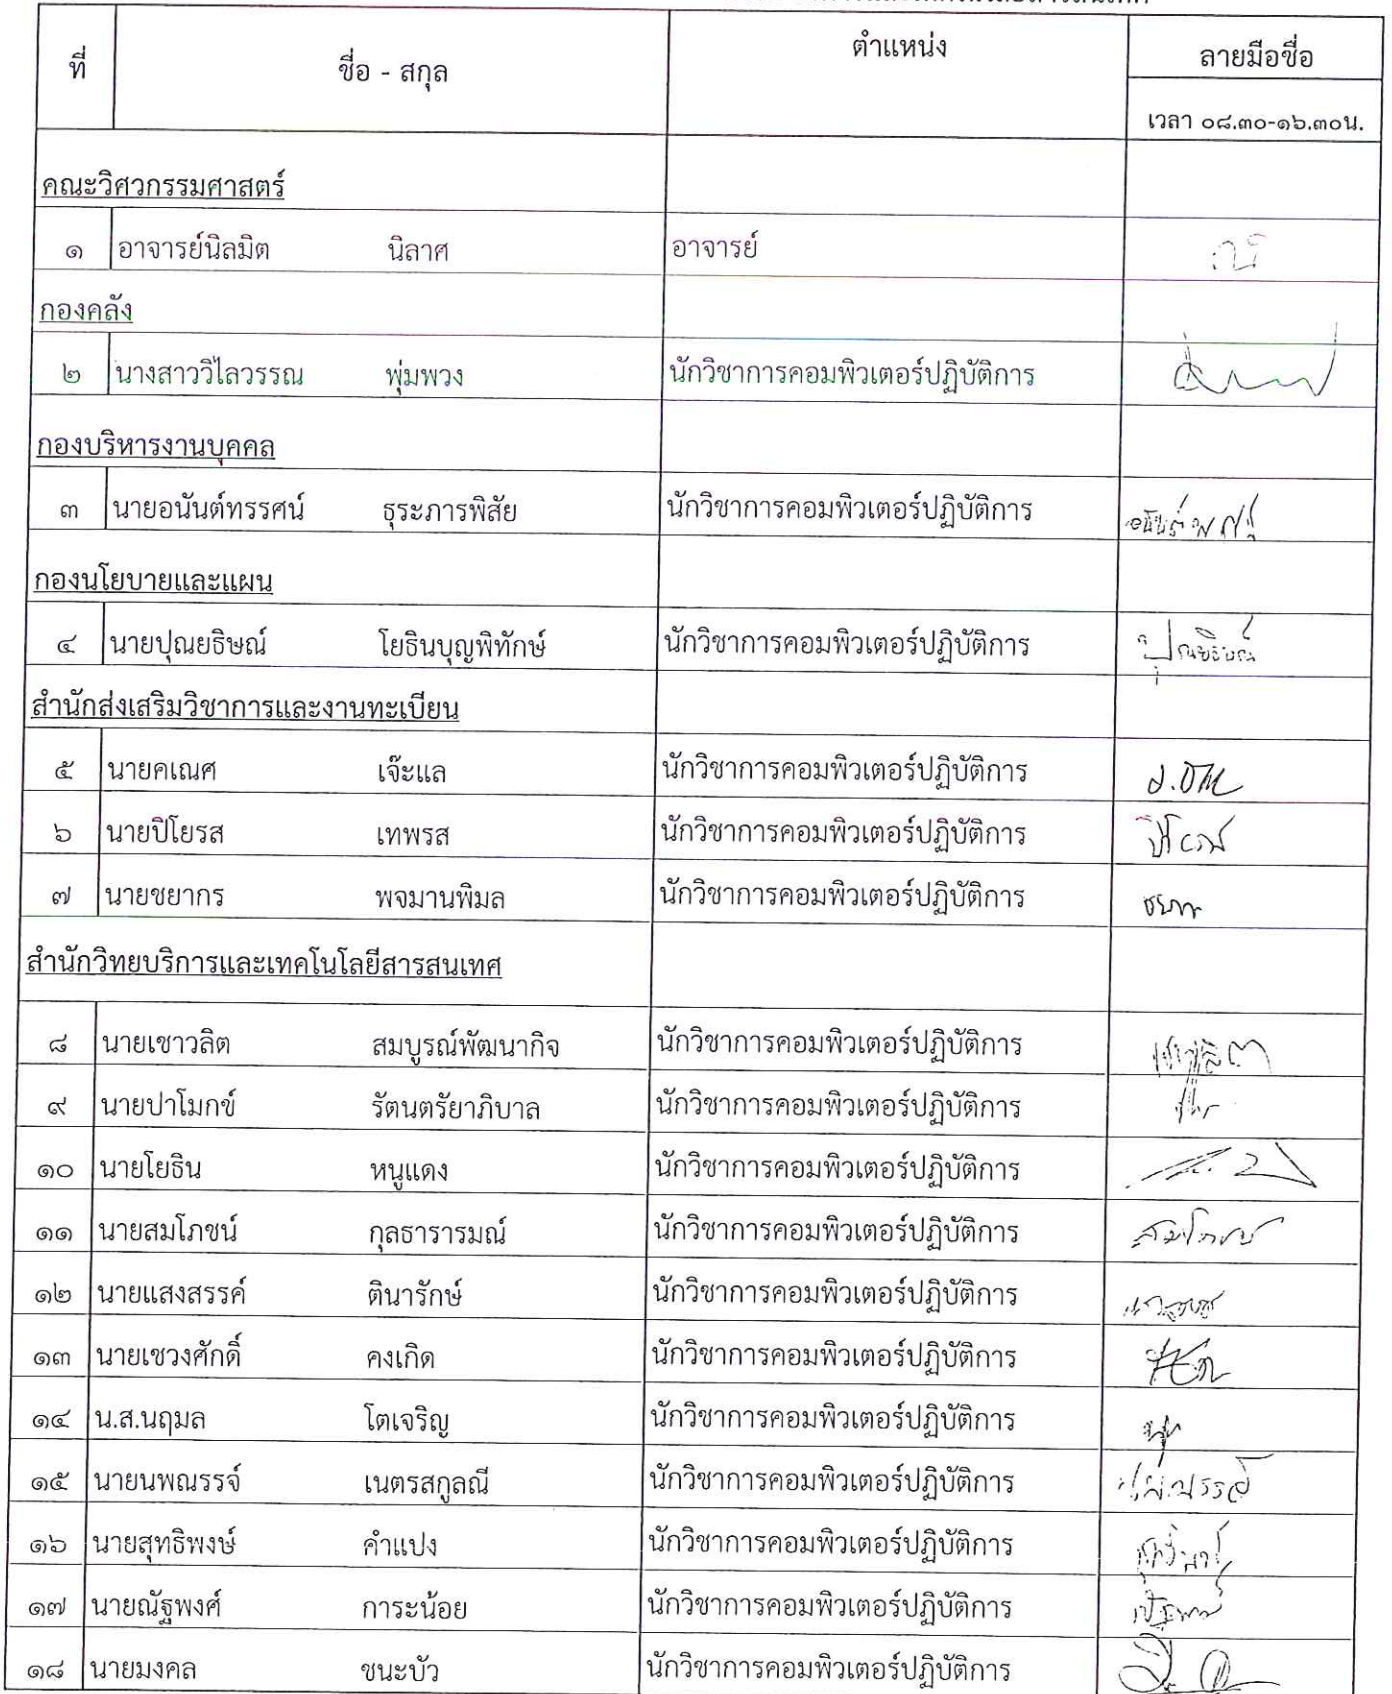 ที่ ชื่อ - สกุล ตำแหน่ง ลายมือชื่อ
เวลา ๐๘.๓๐-๑๖.๓๐น.
คณะวิศวกรรมศาสตร์
๑ อาจารย์นิลมิต นิลาศ อาจารย์
กองคลัง
๒ นางสาววิไลวรรณ พุ่มพวง นักวิชาการคอมพิวเตอร์ปฏิบัติการ
กองบริหารงานบุคคล
๓ นายอนันต์ทรรศน์ ธุระภารพิสัย นักวิชาการคอมพิวเตอร์ปฏิบัติการ
กองนโยบายและแผน
๔ นายปุณยธิษณ์ โยธินบุญพิทักษ์ นักวิชาการคอมพิวเตอร์ปฏิบัติการ
สำนักส่งเสริมวิชาการและงานทะเบียน
๕ นายคเณศ เจ๊ะแล นักวิชาการคอมพิวเตอร์ปฏิบัติการ
๖ นายปิโยรส เทพรส นักวิชาการคอมพิวเตอร์ปฏิบัติการ
๗ นายชยากร พจมานพิมล นักวิชาการคอมพิวเตอร์ปฏิบัติการ
สำนักวิทยบริการและเทคโนโลยีสารสนเทศ
๘ นายเชาวลิต สมบูรณ์พัฒนากิจ นักวิชาการคอมพิวเตอร์ปฏิบัติการ เชาวลิต
๙ นายปาโมกข์ รัตนตรัยาภิบาล นักวิชาการคอมพิวเตอร์ปฏิบัติการ
๑๐ นายโยธิน หนูแดง นักวิชาการคอมพิวเตอร์ปฏิบัติการ
๑๑ นายสมโภชน์ กุลธารารมณ์ นักวิชาการคอมพิวเตอร์ปฏิบัติการ สมโภชน์
๑๒ นายแสงสรรค์ ตินารักษ์ นักวิชาการคอมพิวเตอร์ปฏิบัติการ
๑๓ นายเชวงศักดิ์ คงเกิด นักวิชาการคอมพิวเตอร์ปฏิบัติการ
๑๔ น.ส.นฤมล โตเจริญ นักวิชาการคอมพิวเตอร์ปฏิบัติการ
๑๕ นายนพณรรจ์ เนตรสกูลณี นักวิชาการคอมพิวเตอร์ปฏิบัติการ นพณรรจ์
๑๖ นายสุทธิพงษ์ คำแปง นักวิชาการคอมพิวเตอร์ปฏิบัติการ
๑๗ นายณัฐพงศ์ การะน้อย นักวิชาการคอมพิวเตอร์ปฏิบัติการ
๑๘ นายมงคล ชนะบัว นักวิชาการคอมพิวเตอร์ปฏิบัติการ